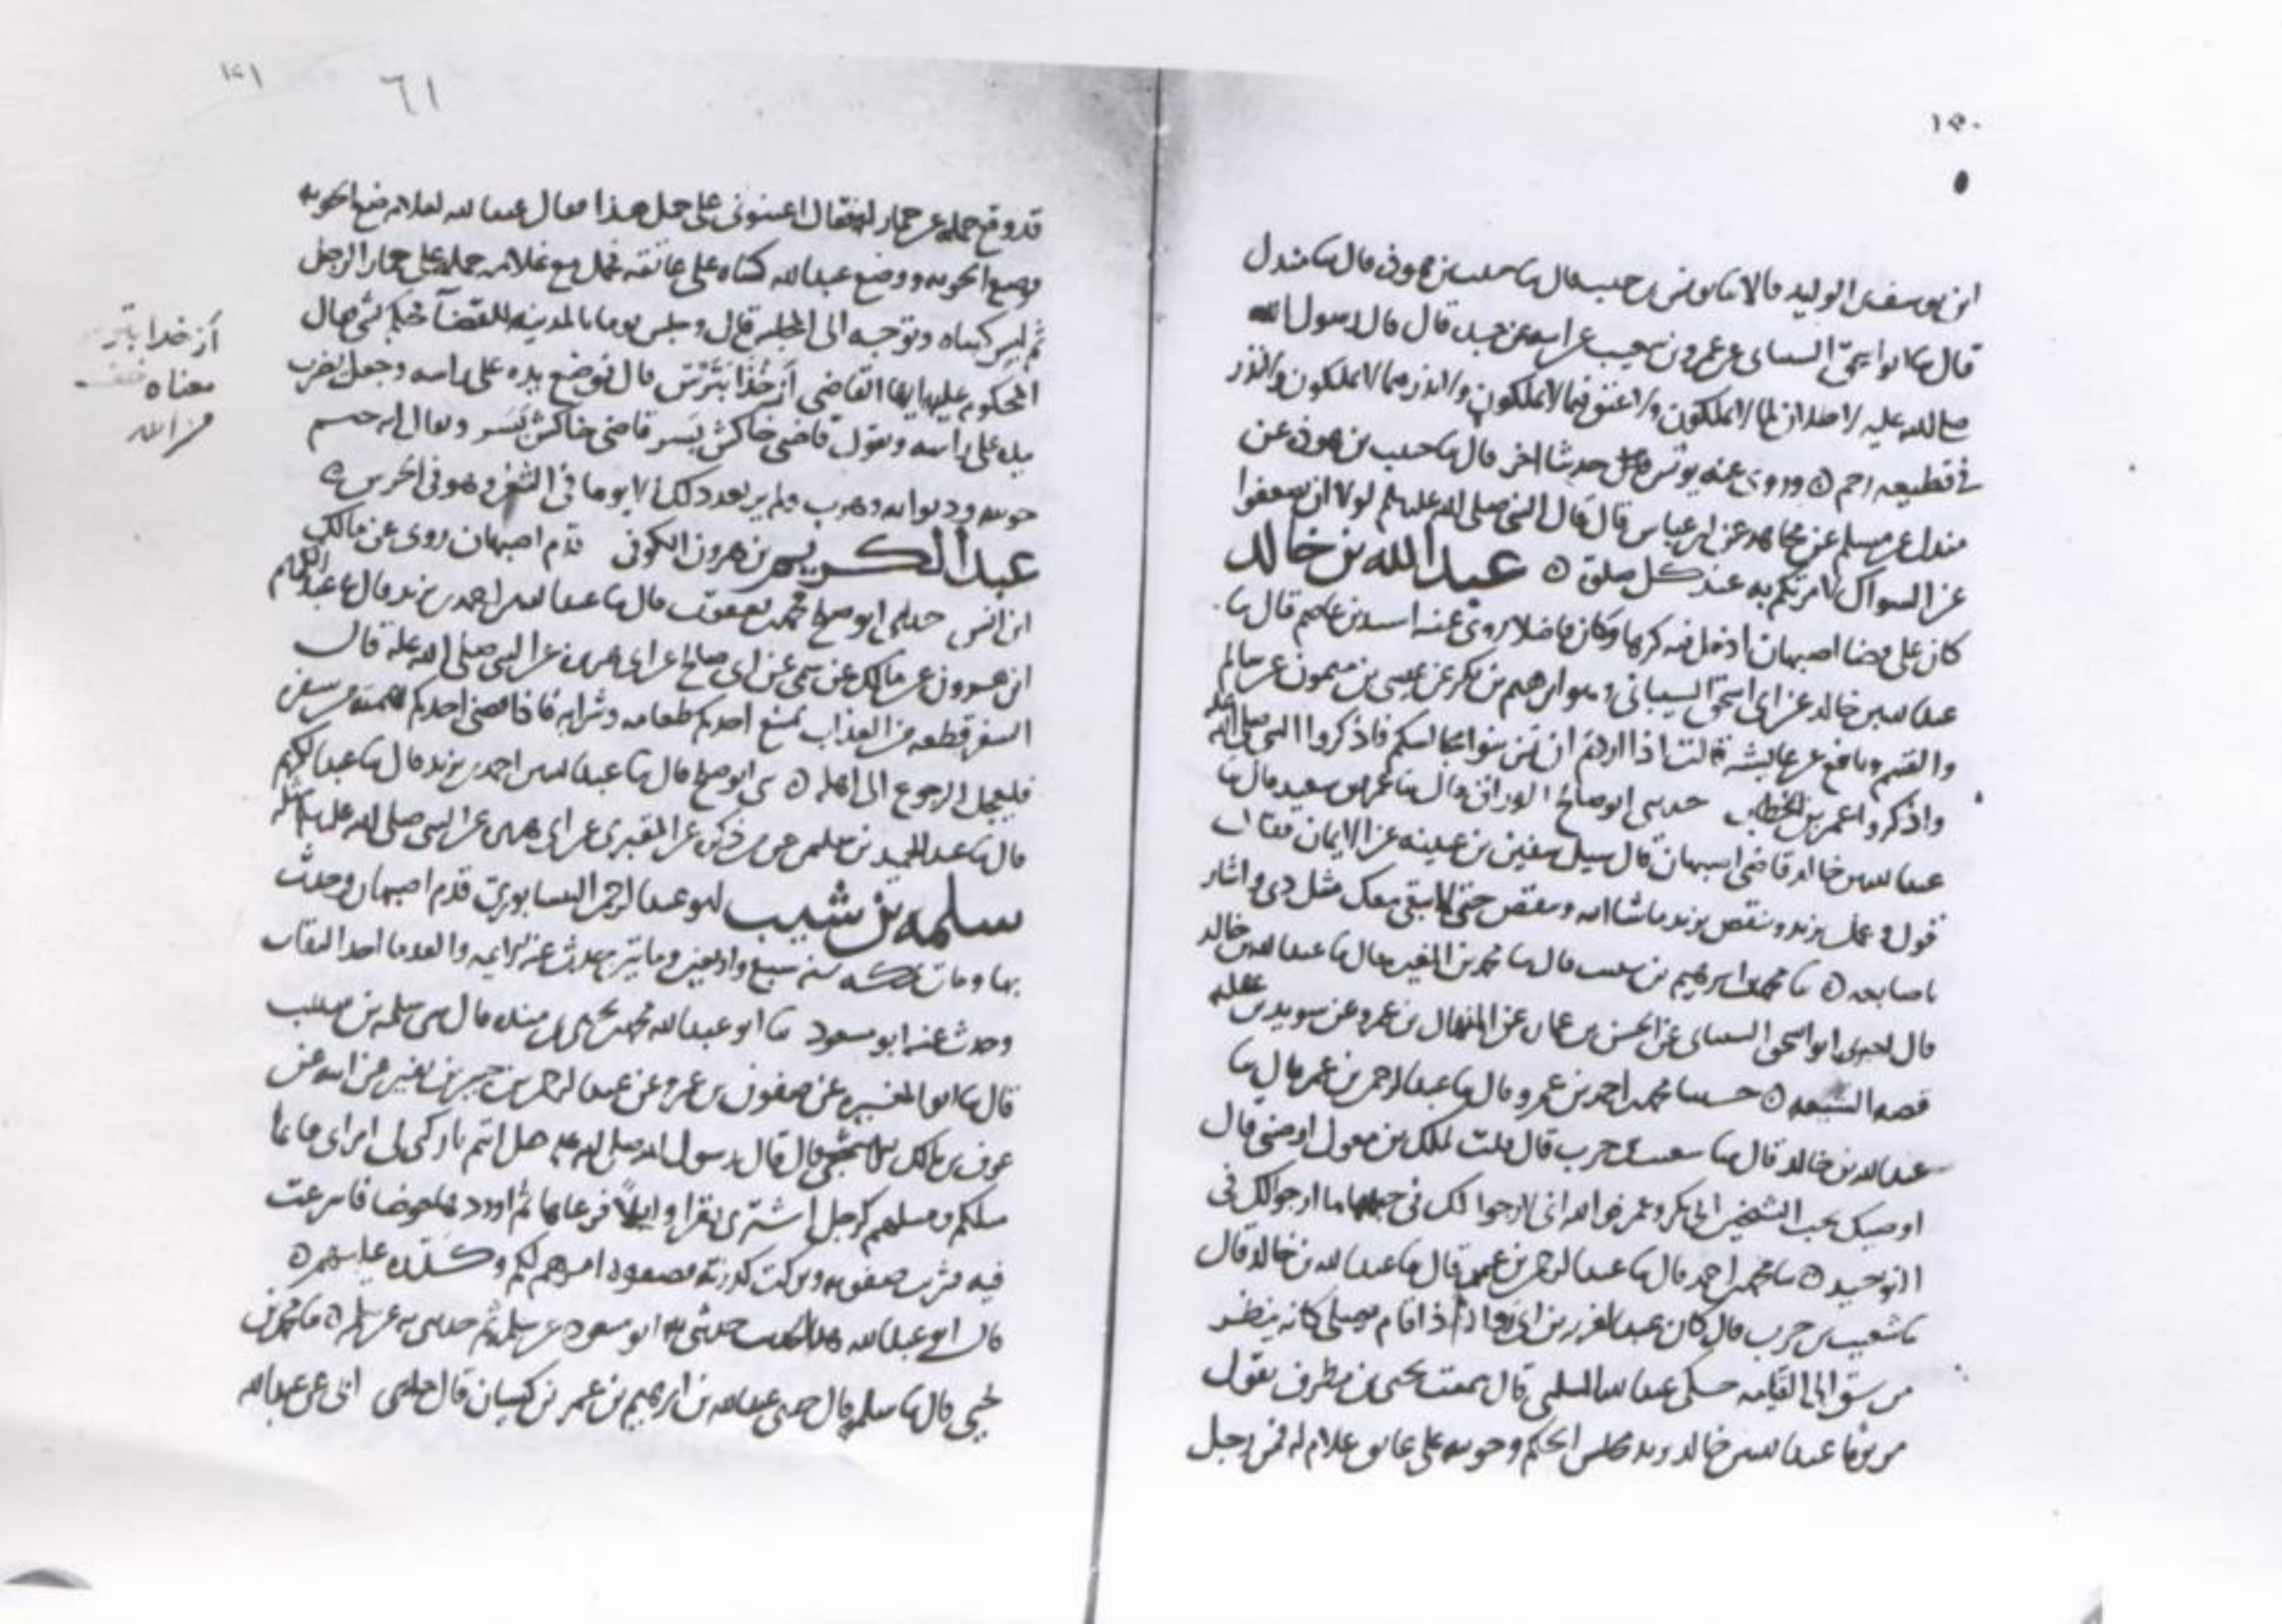 ١٥٠
ابن يوسف بن الوليد قالا ثنا يونس بن حبيب قال ثنا حبيب بن هوذه قال ثنا مندل
قال ثنا ابو اسحق الشيباني عن عمرو بن شعيب عن ابيه عن جده قال قال رسول الله
صلى الله عليه لا طلاق لما لا تملكون ولا عتق فيما لا تملكون ولا نذر فيما لا تملكون ولا نذر
في قطيعه رحم ٥ وروى عنه يونس حديثا اخر قال ثنا حبيب بن هوذه عن
مندل عن مسلم عن مجاهد عن ابن عباس قال قال النبي صلى الله عليه وسلم لولا ان تضعفوا
عن السواك لامرتكم به عند كل صلوة ٥ عبد الله بن خالد
كان على قضا اصبهان ادخل فيه كرها وكان فاضلا روى عنه اسيد بن عاصم قال ثنا
عبد الله بن خالد عن ابي اسحق الشيباني وهو ابرهيم بن بكر عن عيسى بن ميمون عن سالم
والقسم ونافع عن عايشة قالت اذا اردتم ان تزينوا مجالسكم فاذكروا النبي صلى الله عليه
واذكروا عمر بن الخطاب حدثني ابو صالح الوراق قال ثنا عمر بن سعيد قال ثنا
عبد الله بن خالد قاضي اصبهان قال سيل سفين بن عيينه عن الايمان فقال
قول وعمل يزيد وينقص يزيد ماشا الله وينقص حتى لا يبقى معك مثل ذي واشار
باصابعه ٥ ثنا محمد بن ابرهيم بن شبيب قال ثنا محمد بن المغيره قال ثنا عبد الله بن خالد
قال اخبرني ابو اسحق الشيباني عن الحسن بن عماره عن المنهال بن عمرو عن سويد بن غفله
قصه الشيعه ٥ حدثنا محمد بن احمد بن عمرو قال ثنا عبد الرحمن بن عمر قال ثنا
عبد الله بن خالد قال ثنا شعيب بن حرب قال قلت لملك بن مغول اوصني قال
اوصيك بحب الشيخين ابي بكر وعمر فوالله اني لارجوا لك في حبهما ما ارجوا لك في
التوحيد ٥ ثنا محمد بن احمد قال ثنا عبد الرحمن بن عمر قال ثنا عبد الله بن خالد قال
ثنا شعيب بن حرب قال كان عبد العزيز بن ابي رواد اذا قام يصلي كانه ينظر
الى القيامه حكى عبد الله السلمي قال سمعت يحيى بن مطرف يقول
مر بنا عبد الله بن خالد يريد مجلس الحكم وجونه على عاتق غلام له فمر رجل
١٥١
٦١
قد وقع حمله عن حمار له فقال اعينوني على حمل هذا فقال عبد الله لغلامه ضع الجونه
فوضع الجونه ووضع عبد الله كساه على عاتقه فحمل مع غلامه حمله على حمار الرجل
ثم لبس كساه وتوجه الى المجلس قال وجلس يوما بالمدينه للقضا فحكم بشي فقال
المحكوم عليه ايها القاضي أز خذا بترس قال فوضع يده على راسه وجعل يضرب
يده على راسه ويقول قاضي خاكش بسر قاضي خاكش بسر وقال له ختم
جونه وديوانه وهرب ولم ير بعد ذلك الا يوما في الثغر وهو في الحرس ٥
عبد الكريم بن هرون الكوفي قدم اصبهان روى عن مالك
ابن انس حدثني ابو صالح محمد بن يعقوب قال ثنا عبد الله بن احمد بن يزيد قال ثنا عبد الكريم
ابن هرون عن مالك عن سمي عن ابي صالح عن ابي هريره عن النبي صلى الله عليه قال
السفر قطعه من العذاب يمنع احدكم طعامه وشرابه فاذا قضى احدكم نهمته من سفره
فليعجل الرجوع الى اهله ٥ ثنا ابو صالح قال ثنا عبد الله بن احمد بن يزيد قال ثنا عبد الكريم
قال ثنا عبد الحميد بن عن المقبري عن ابي هريره عن النبي صلى الله عليه وسلم مثله
سلمه بن شبيب ابو عبد الرحمن النيسابوري قدم اصبهان وحدث
بها ومات بمكه سنه سبع واربعين ومايتين حدث عنه الايمه والقدما احد الثقات
وحدث عنه ابو مسعود ثنا ابو عبد الله محمد بن يحيى بن منده قال ثنا سلمه بن شبيب
قال ثنا ابو المغيره عن صفوان بن عمرو عن عبد الرحمن بن جبير بن نفير عن ابيه عن
عوف بن مالك الاشجعي قال قال رسول الله صلى الله عليه هل انتم تاركوا لي امراي فانما
مثلكم ومثلهم كرجل اشترى بقرا وابلا فرعاها ثم اوردها حوضا فاسرعت
فيه فشربت صفوه وتركت كدرته فصفوه امرهم لكم وكدره عليهم ٥
قال ابو عبد الله حدثني به ابو مسعود عن سلمه ثم حدثني به عن سلمه ٥ ثنا محمد بن
يحيى قال ثنا سلمه قال حدثني عبد الله بن ابرهيم بن عمر بن كيسان قال حدثني ابي عن عبد الله
أز خدا بترس
معناه خف
من الله